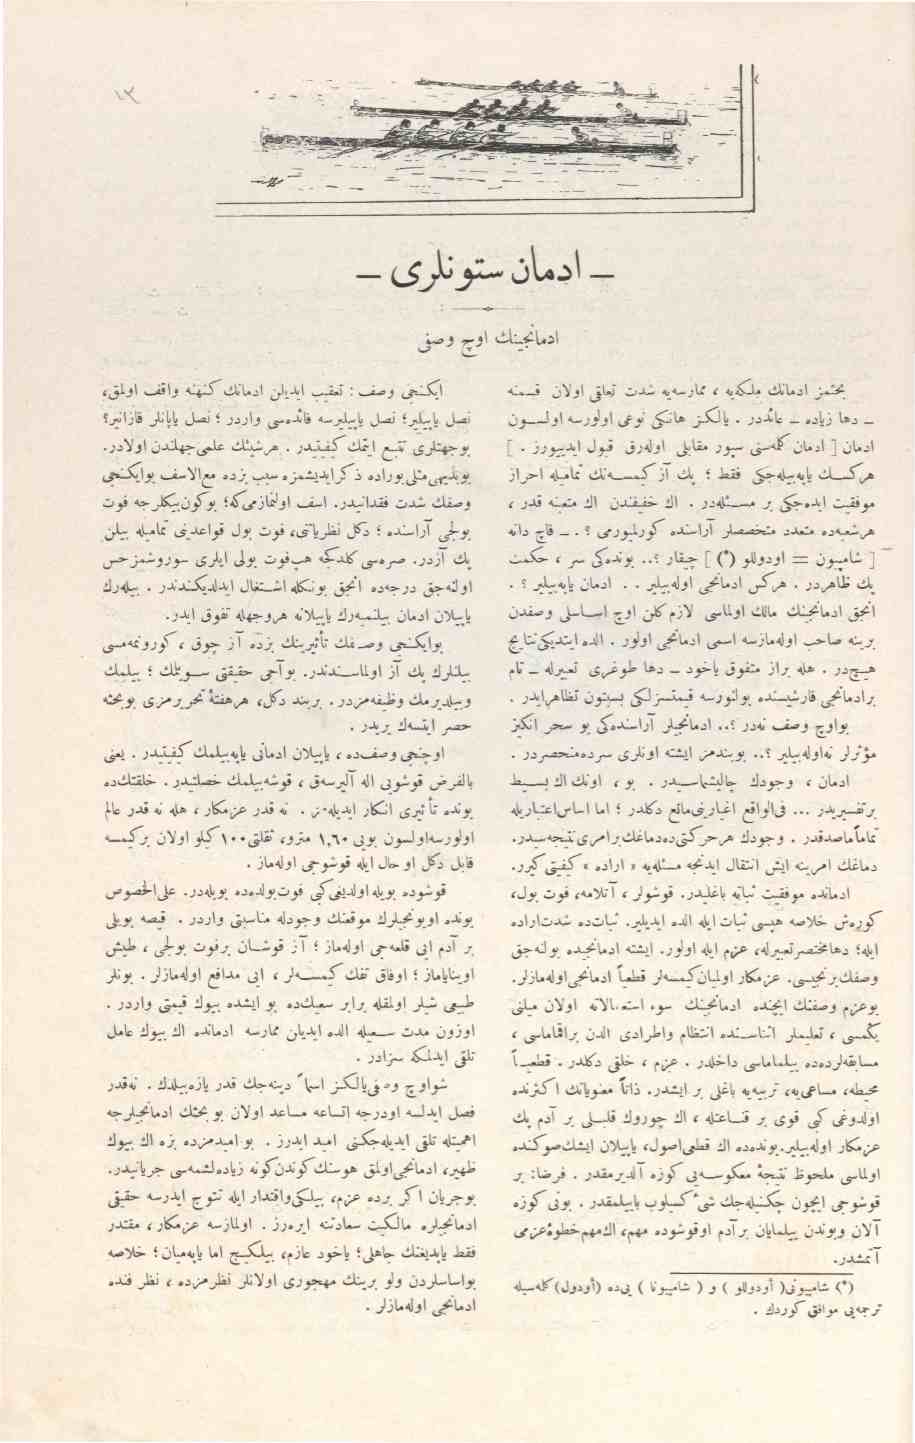 ١٣
— ادمان ستونلری —
ادمانجینك اوچ وصفی
بحثمز ادمانك ملكه‌یه ، ممارسه‌یه شدت تعلقی اولان قسمنه
— دها زیاده — عائددر . یالكز هانكی نوعی اولورسه اولسون
ادمان [ ادمان كلمه‌سنی سپور مقابلی اوله‌رق قبول ایدییورز . ]
هركسك یاپه‌بیله‌جكی فقط ؛ پك آز كیمسه‌نك تمامیله احراز
موفقیت ایده‌جكی بر مسئله‌در . اك خفیفندن اك متعبنه قدر ،
هرشعبه‌ده متعدد متخصصلر آراسنده كورلمیورمی ؟ . — قاچ دانه
[ شامپیون = اودوللو (*) ] چیقار ؟.. بونده‌كی سر ، حكمت
پك ظاهردر . هركس ادمانجی اوله‌بیلیر . . ادمان یاپه‌بیلیر ؟ .
انجق ادمانجینك مالك اولماسی لازم كلن اوچ اساسلی وصفدن
برینه صاحب اوله‌مازسه اسمی ادمانجی اولور . الده ایتدیكی نتایج
هیچدر . هله براز متفوق یاخود — دها طوغری تعبیرله — تام
برادمانجی قارشیسنده بولنورسه قیمتسزلكی بسبتون تظاهر ایدر .
بواوچ وصف نه‌در ؟.. ادمانجیلر آراسنده‌كی بو سحر انكیز
مؤثرلر نه‌اوله‌بیلیر ؟.. بوبندمز ایشته اونلری سرده منحصردر .
ادمان ، وجودك چالیشماسیدر . بو ، اونك اك بسیط
برتفسیریدر ... فی‌الواقع اغیارینی مانع دكلدر ؛ اما اساس اعتباریله
تماماً ماصدقدر . وجودك هرحركتی‌ده دماغك برامری نتیجه‌سیدر.
دماغك امرینه ایش انتقال ایدنجه مسئله‌یه « اراده » كیفیتی كیرر.
ادمانده موفقیت ثباته باغلیدر. قوشولر ، آتلامه، فوت بول،
كورەش خلاصه هپسی ثبات ایله الده ایدیلیر. ثبات‌ده شدت اراده
ایله؛ دها مختصر تعبیرله، عزم ایله اولور. ایشته ادمانجیده بولنه‌جق
وصفك برنجیسی. عزمكار اولمیان كیمسه‌لر قطعیاً ادمانجی اوله‌مازلر.
بوعزم وصفنك ایچنده ادمانجینك سوء استعمالاته اولان میلنی
یكمسی ، تعلیملر اثناسنده انتظام واطرادی الدن براقماماسی ،
مسابقه‌لرده‌ده ییلماماسی داخلدر . عزم ، خلقی دكلدر . قطعیاً
محیطه، مساعی‌یه، تربیه‌یه باغلی بر ایشدر. ذاتاً معنویاتك اكثرنده
اولدوغی كبی قوی بر قناعتله ، اك چوروك قلبلی بر آدم پك
عزمكار اوله‌بیلیر. بونده‌ده اك قطعی اصول، یاپیلان ایشك صوكنده
اولماسی ملحوظ نتیجهٔ معكوسه‌یی كوزه آلدیرمقدر . فرضا: بر
قوشوجی ایچون چكیله‌جك شیٔ كسلوب باییلمقدر . بونی كوزه
آلان وبوندن ییلمایان برآدم اوقوشوده مهم، اك مهم خطوهٔ عزمی
آتمشدر.
(*) شامپیونی ( أودوللو ) و ( شامپیونا ) یی‌ده (أودول) كلمه‌سیله
ترجمه‌یی موافق كوردك .
ایكنجی وصف : تعقیب ایدیلن ادمانك كنهنه واقف اولمق،
نصل یاپیلیر؛ نصل یاپیلیرسه فائده‌سی واردر ؛ نصل یاپانلر قازانیر؟
بوجهتلری تتبع ایتمك كیفیتیدر . هرشیئك علمی جهلندن اولادر.
بوبدیهی مثلی بوراده ذكر ایدیشمزه سبب بزده مع‌الاسف بوایكنجی
وصفك شدت فقدانیدر. اسف اولنمازمی كه؛ بوكون بیكلرجه فوت
بولجی آراسنده ؛ دكل نظریاتنی، فوت بول قواعدینی تمامیله بیلن
پك آزدر. صره‌سی كلدكجه هپ فوت بولی ایلری سوروشمز حس
اولنه‌جق درجه‌ده انجق بونكله اشتغال ایدلدیكندندر . بیله‌رك
یاپیلان ادمان بیلنمیه‌رك یاپیلانه هر وجهله تفوق ایدر.
بوایكنجی وصفك تأثیرینك بزده آز چوق ، كورونمه‌مسی
بیلنلرك پك آز اولماسندندر. بوآجی حقیقتی سویلمك ؛ بیلمك
وبیلدیرمك وظیفه‌مزدر . بربند دكل، هرهفتهٔ تحریرمزی بوبحثه
حصر ایتسه‌ك یریدر .
اوچنجی وصف‌ده ، یاپیلان ادمانی یاپه‌بیلمك كیفیتیدر . یعنی
بالفرض قوشویی اله آلیرسه‌ق ، قوشه‌بیلمك خصلتیدر. خلقتك‌ده
بونده تأثیری انكار ایدیله‌مز . نه قدر عزمكار ، هله نه قدر عالم
اولورسه‌اولسون بویی ١,٦٠ مترو، ثقلتی ١٠٠ كیلو اولان بركیمسه
قابل دكل او حال ایله قوشوجی اوله‌ماز .
قوشوده بویله اولدیغی كبی فوت بولده‌ده بویله‌در. علی‌الخصوص
بونده اویونجیلرك موقعنك وجودله مناسبتی واردر . قیصه بویلی
بر آدم ایی قلعه‌جی اوله‌ماز ؛ آز قوشان برفوت بولجی ، طیش
اوینایاماز ؛ اوفاق تفك كیمسه‌لر ، ایی مدافع اوله‌مازلر . بونلر
طبیعی شیلر اولمقله برابر سعیك‌ده بو ایشده بیوك قیمتی واردر.
اوزون مدت سعیله الده ایدیلن ممارسه ادمانده اك بیوك عامل
تلقی ایدلمكه سزادر .
شواوچ وصفی یالكز اسماً دینه‌جك قدر یازه‌بیلدك . نه‌قدر
فصل ایدلسه اودرجه اتساعه مساعد اولان بو بحثك ادمانجیلرجه
اهمیتله تلقی ایدیله‌جكنی امید ایدرز . بو امیدمزده بزه اك بیوك
ظهیر، ادمانجی اولمق هوسنك كوندن كونه زیاده‌لشمه‌سی جریانیدر.
بوجریان اكر برده عزم، بیلكی واقتدار ایله تتوج ایدرسه حقیقی
ادمانجیلره مالكیت سعادتنه ایره‌رز . اولمازسه عزمكار ، مقتدر
فقط یاپدیغنك جاهلی؛ یاخود عازم، بیلكیج اما یاپه‌میان؛ خلاصه
بواساسلردن ولو برینك مهجوری اولانلر نظرمزده ، نظر فنده
ادمانجی اوله‌مازلر .